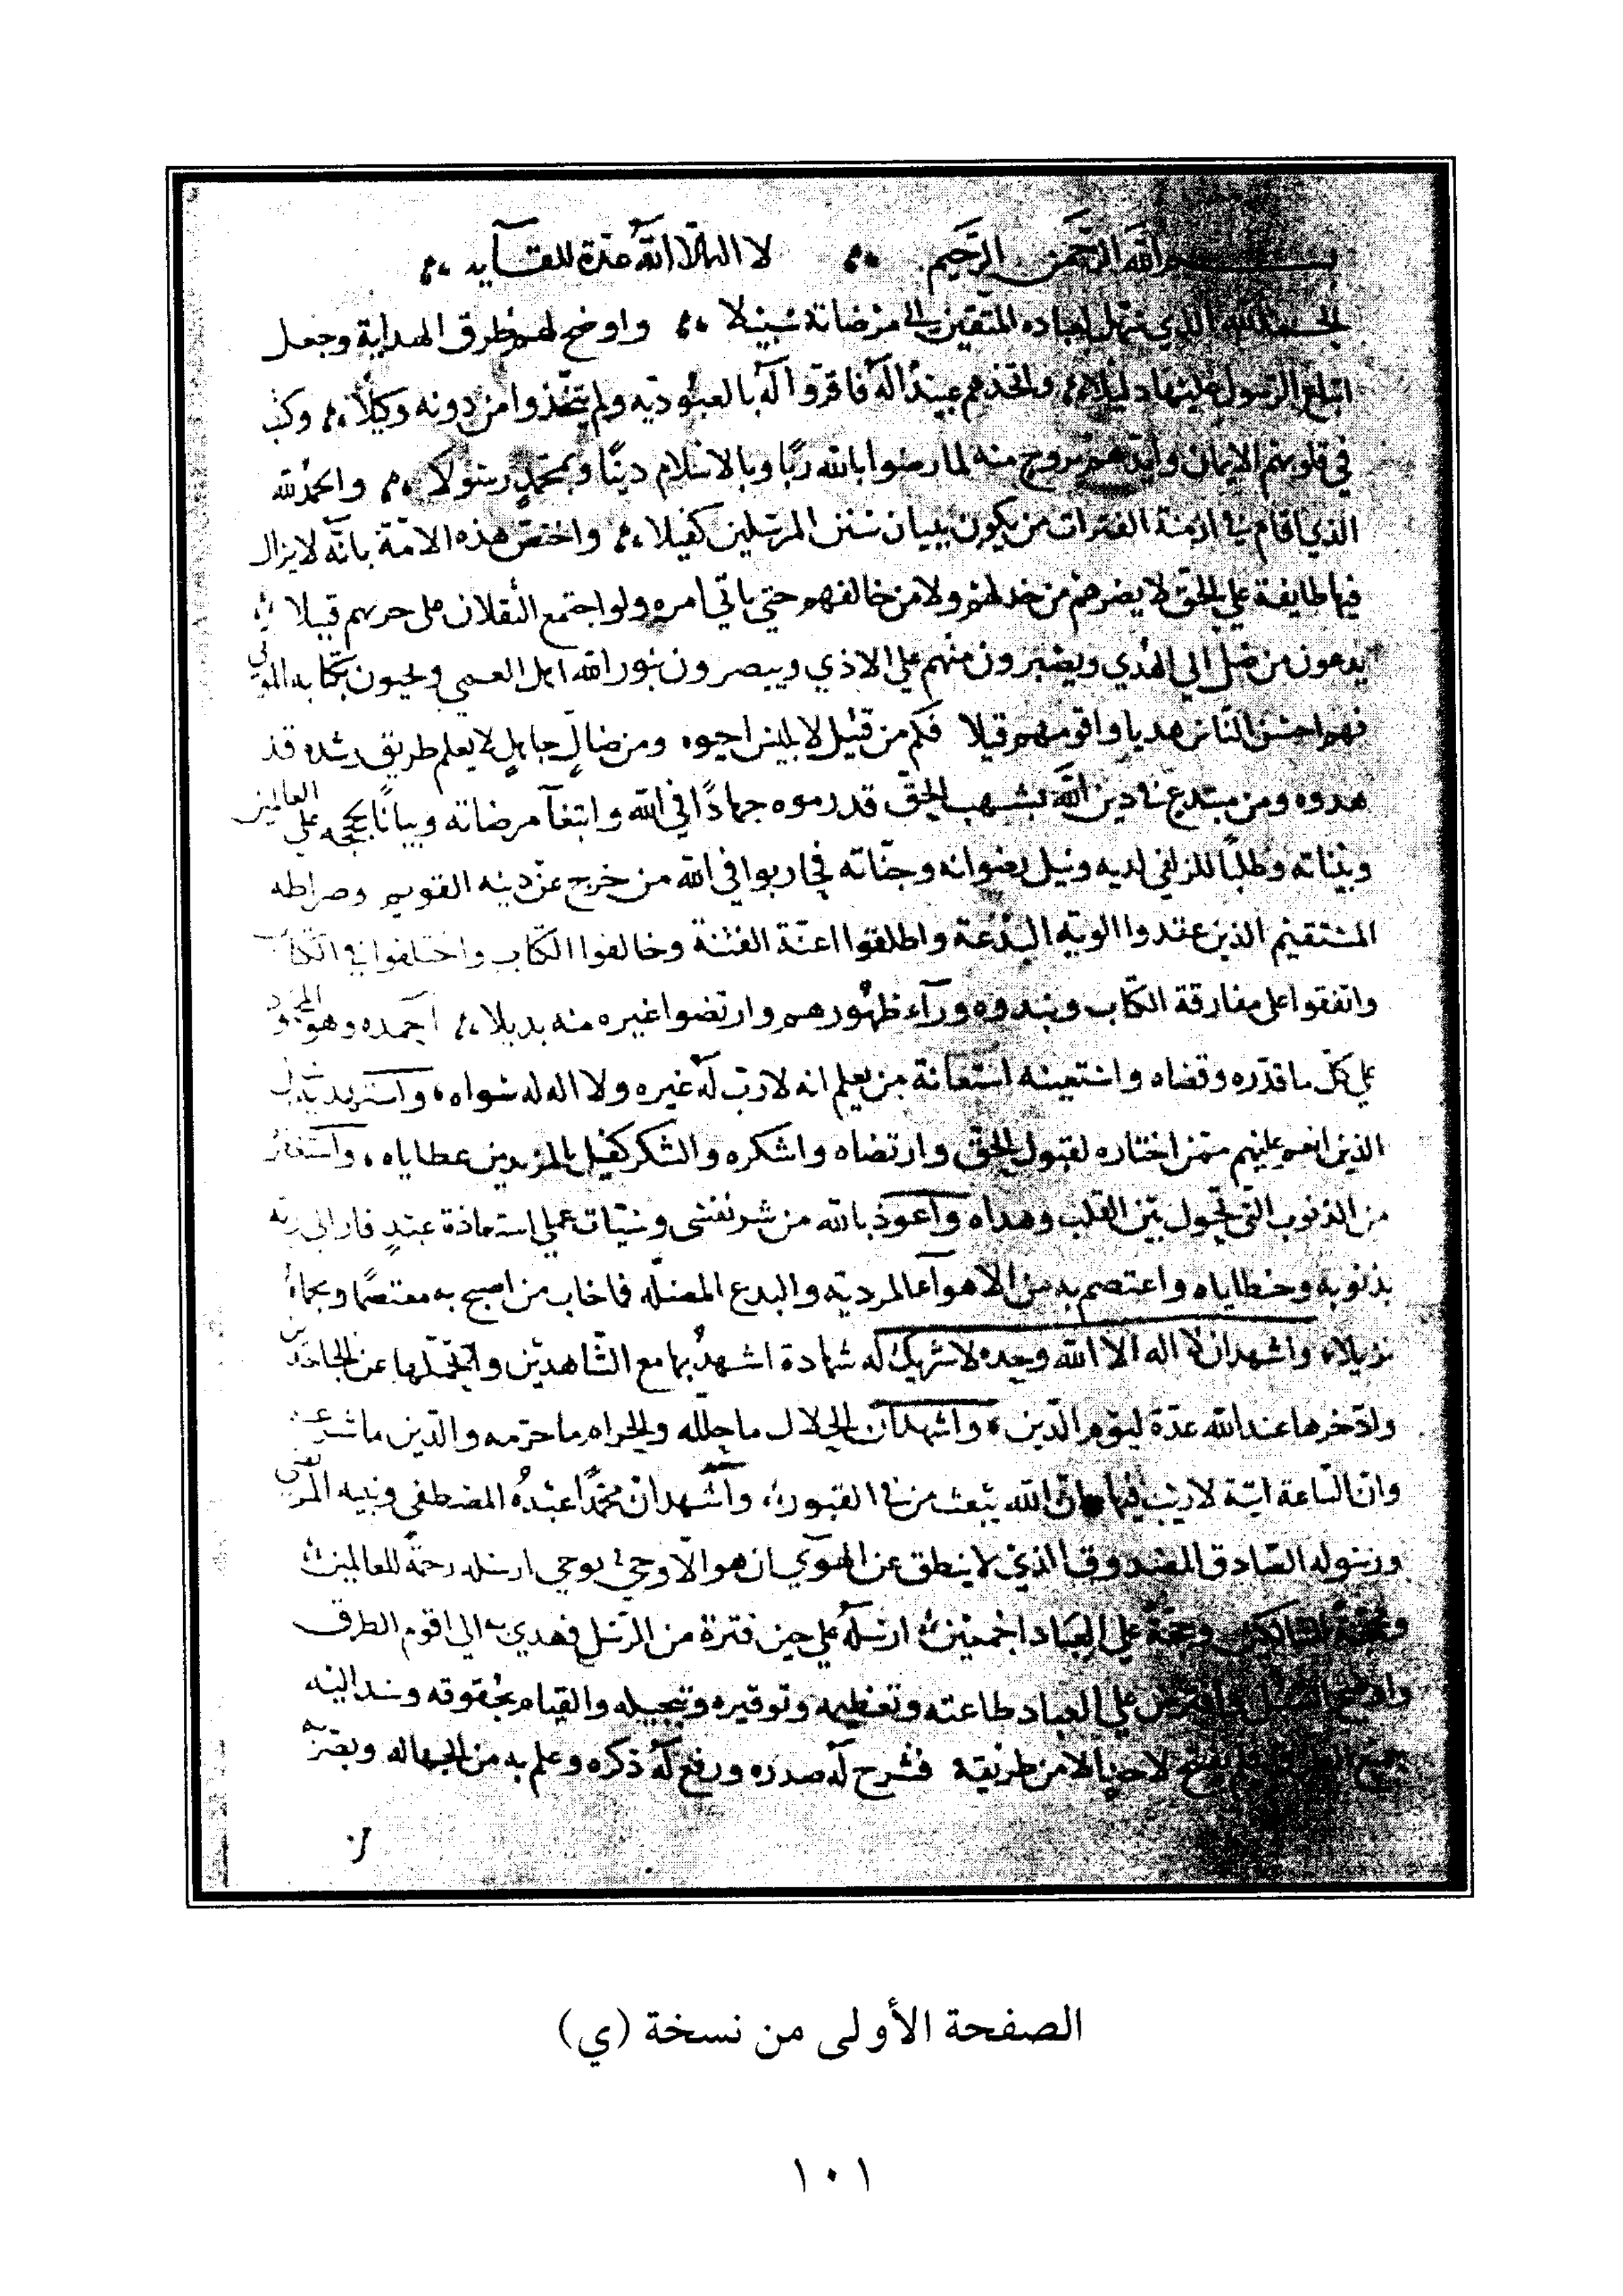 بسم الله الرحمن الرحيم ؞ لا اله الا الله عدة للقآيه ؞
الحمد لله الذي سهل لعباده المتقين الى مرضاته سبيلا ؞ واوضح لهم طرق الهداية وجعل
اتباع الرسول عليها دليلا ؞ واتخذهم عبيدا له فاقروا له بالعبودية ولم يتخذوا من دونه وكيلا ؞ وكتب
في قلوبهم الايمان وايدهم بروح منه لما رضوا بالله ربا وبالاسلام دينا وبمحمد رسولا ؞ والحمد لله
الذي اقام في ازمنة الفترات من يكون ببيان سنن المرسلين كفيلا ؞ واختص هذه الامة بانه لا يزال
فيها طايفة على الحق لا يضرهم من خذلهم ولا من خالفهم حتى ياتي امره ولو اجتمع الثقلان على حربهم قبيلا
يدعون من ضل الي الهدي ويصبرون منهم علي الاذي ويبصرون بنور الله اهل العمي ويحيون بكتابه الموتي
فهم احسن الناس هديا واقومهم قيلا فكم من قتيل لابليس احيوه ومن ضال جاهل لا يعلم طريق رشده قد
هدوه ومن مبتدع في دين الله بشهب الحق قد رموه جهادا في الله وابتغآ مرضاته وبيانا لحججه على العالمين
وبيناته وطلبا للزلفي لديه ونيل رضوانه وجناته فحاربوا في الله من خرج عن دينه القويم وصراطه
المستقيم الذين عقدوا الوية البدعة واطلقوا اعنة الفتنة وخالفوا الكتاب واختلفوا في الكتاب
واتفقوا على مفارقة الكتاب ونبذوه ورآء ظهورهم وارتضوا غيره منه بديلا ؞ احمده وهو المحمود
على كل ما قدره وقضاه واستعينه استعانة من يعلم انه لا رب له غيره ولا اله له سواه، واستهديه سبيل
الذين انعم عليهم ممن اختاره لقبول الحق وارتضاه واشكره والشكر كفيل بالمزيد من عطاياه، واستغفره
من الذنوب التي تحول بين القلب وهداه واعوذ بالله من شر نفسي وسيئات عملي استعاذة عبد فار الى ربه
بذنوبه وخطاياه واعتصم به من الاهوآء المردية والبدع المضلة فما خاب من اصبح به معتصما وبحماه
نزيلا، واشهد ان لا اله الا الله وحده لا شريك له شهادة اشهد بها مع الشاهدين واتحملها عن الجاحدين
وادخرها عند الله عدة ليوم الدين، واشهد ان الحلال ما حلله والحرام ما حرمه والدين ما شرعه
وان الساعة اتية لا ريب فيها وان الله يبعث من في القبور، واشهد ان محمدا عبده المصطفى ونبيه المرتضى
ورسوله الصادق المصدوق الذي لا ينطق عن الهوي ان هو الا وحي يوحي ارسله رحمة للعالمين
ومحجة للسالكين وحجة علي العباد اجمعين ارسله علي حين فترة من الرسل فهدي به الي اقوم الطرق
واوضح السبل وافترض علي العباد طاعته وتعظيمه وتوقيره وتبجيله والقيام بحقوقه وسد اليه
جميع الطرق فلم يفتح لاحد الا من طريقه فشرح له صدره ورفع له ذكره وعلم به من الجهالة وبصر به
الصفحة الأولى من نسخة (ي)
١٠١